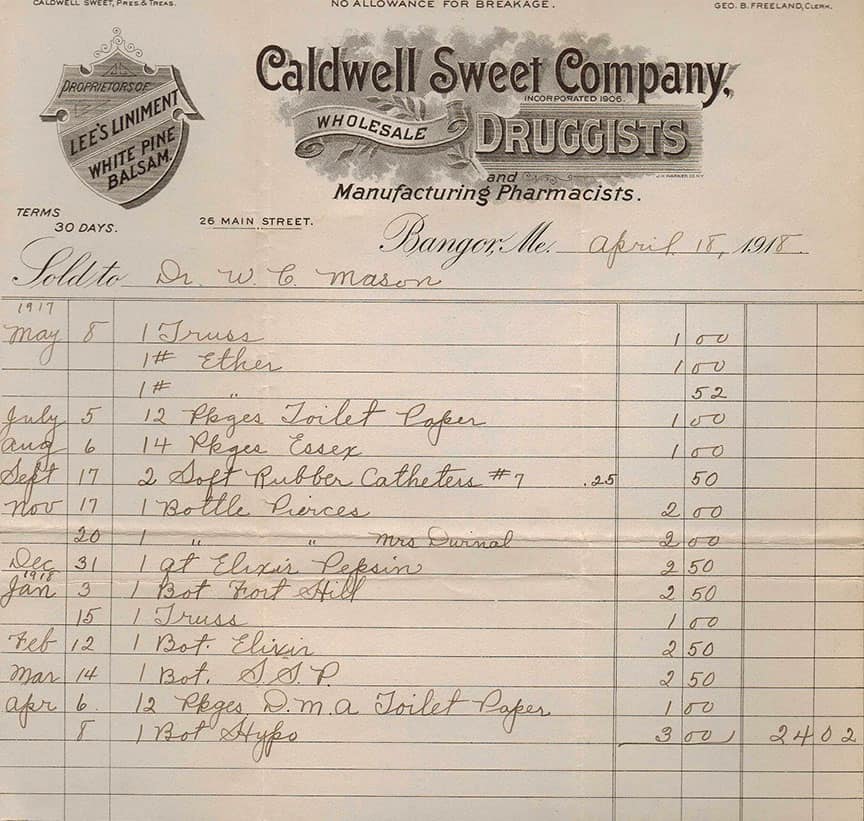 CALDWELL SWEET, PRES. & TREAS. NO ALLOWANCE FOR BREAKAGE. GEO. B. FREELAND, CLERK.
PROPRIETORS OF
LEE'S LINIMENT
WHITE PINE
BALSAM.
Caldwell Sweet Company,
INCORPORATED 1906.
WHOLESALE DRUGGISTS
and
Manufacturing Pharmacists.
TERMS
30 DAYS.
26 MAIN STREET.
Bangor, Me. April 18, 1918
Sold to Dr. W. C. Mason
1917
May 8 1 Truss 1 00
1# Ether 1 00
1# " 52
July 5 12 Pkges Toilet Paper 1 00
Aug 6 14 Pkges Essex 1 00
Sept 17 2 Soft Rubber Catheters #7 .25 50
Nov 17 1 Bottle Pierces 2 00
20 1 " " Mrs Durnal 2 00
Dec 31 1 qt Elixir Pepsin 2 50
1918
Jan 3 1 Bot Fort Hill 2 50
15 1 Truss 1 00
Feb 12 1 Bot. Elixir 2 50
Mar 14 1 Bot. S.S.P. 2 50
Apr 6 12 Pkges D.M.A Toilet Paper 1 00
8 1 Bot Hypo 3 00 24 02